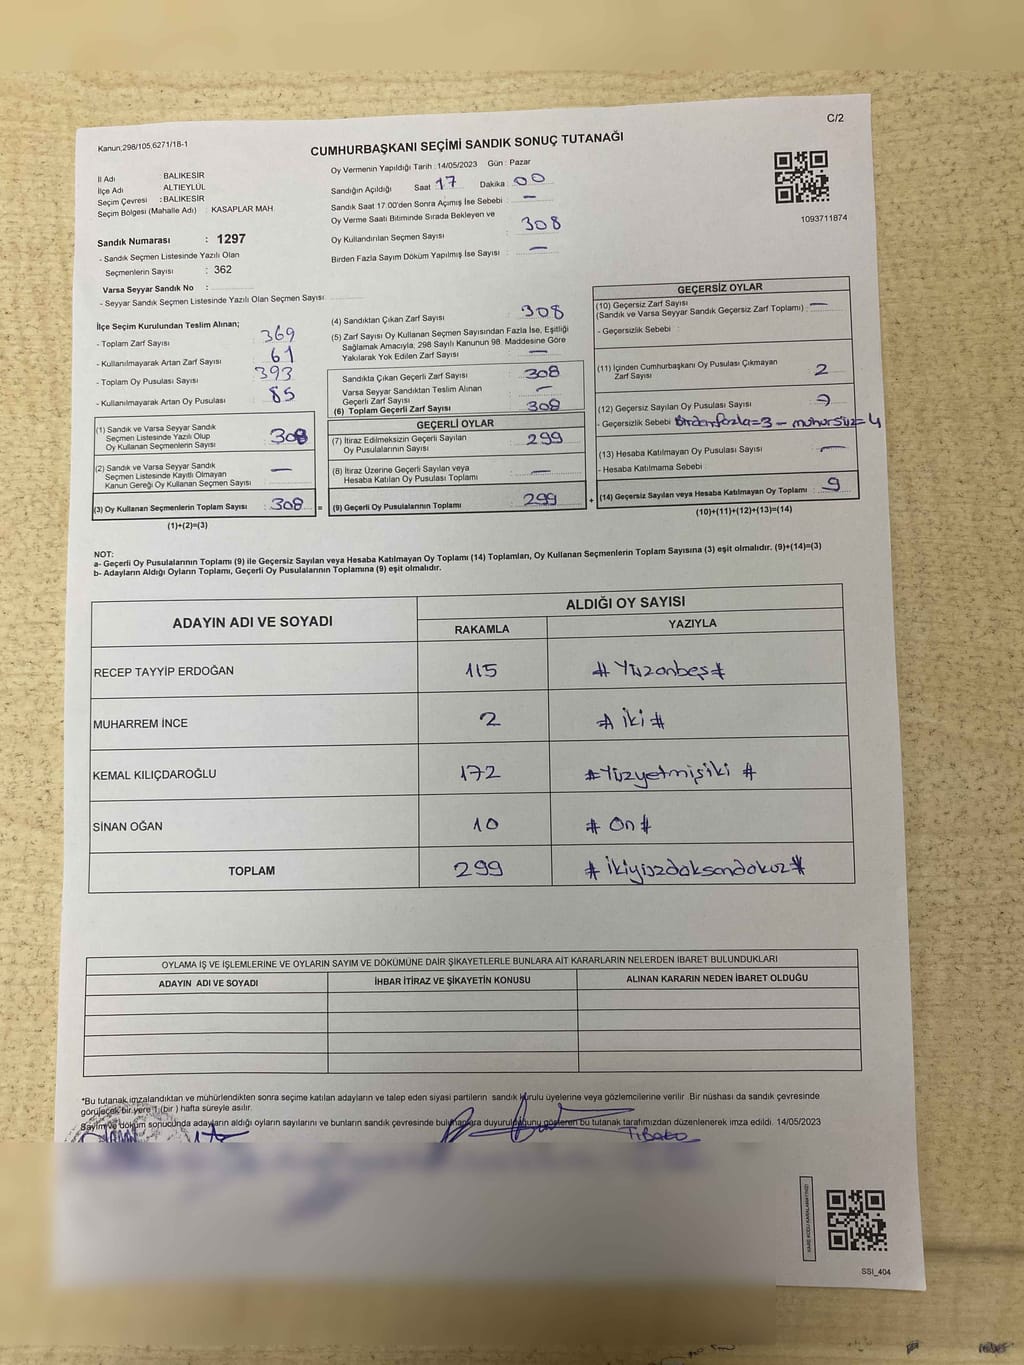 C/2
Kanun;298/105,6271/18-1
CUMHURBAŞKANI SEÇİMİ SANDIK SONUÇ TUTANAĞI
1093711874
İl Adı BALIKESİR
İlçe Adı ALTIEYLÜL
Seçim Çevresi : BALIKESİR
Seçim Bölgesi (Mahalle Adı) : KASAPLAR MAH.
Sandık Numarası : 1297
- Sandık Seçmen Listesinde Yazılı Olan
Seçmenlerin Sayısı : 362
Varsa Seyyar Sandık No :
- Seyyar Sandık Seçmen Listesinde Yazılı Olan Seçmen Sayısı
Oy Vermenin Yapıldığı Tarih : 14/05/2023 Gün : Pazar
Sandığın Açıldığı Saat 17 Dakika 00
Sandık Saat 17:00'den Sonra Açımış İse Sebebi : —
Oy Verme Saati Bitiminde Sırada Bekleyen ve
Oy Kullandırılan Seçmen Sayısı : 308
Birden Fazla Sayım Döküm Yapılmış İse Sayısı : —
İlçe Seçim Kurulundan Teslim Alınan;
- Toplam Zarf Sayısı : 369
- Kullanılmayarak Artan Zarf Sayısı : 61
- Toplam Oy Pusulası Sayısı : 393
- Kullanılmayarak Artan Oy Pusulası : 85
(1) Sandık ve Varsa Seyyar Sandık
Seçmen Listesinde Yazılı Olup
Oy Kullanan Seçmenlerin Sayısı : 308
(2) Sandık ve Varsa Seyyar Sandık
Seçmen Listesinde Kayıtlı Olmayan
Kanun Gereği Oy Kullanan Seçmen Sayısı : —
(3) Oy Kullanan Seçmenlerin Toplam Sayısı : 308 =
(1)+(2)=(3)
(4) Sandıktan Çıkan Zarf Sayısı : 308
(5) Zarf Sayısı Oy Kullanan Seçmen Sayısından Fazla İse, Eşitliği
Sağlamak Amacıyla; 298 Sayılı Kanunun 98. Maddesine Göre
Yakılarak Yok Edilen Zarf Sayısı : —
Sandıkta Çıkan Geçerli Zarf Sayısı : 308
Varsa Seyyar Sandıktan Teslim Alınan
Geçerli Zarf Sayısı : —
(6) Toplam Geçerli Zarf Sayısı : 308
GEÇERLİ OYLAR
(7) İtiraz Edilmeksizin Geçerli Sayılan
Oy Pusulalarının Sayısı : 299
(8) İtiraz Üzerine Geçerli Sayılan veya
Hesaba Katılan Oy Pusulası Toplamı : —
(9) Geçerli Oy Pusulalarının Toplamı : 299 +
GEÇERSİZ OYLAR
(10) Geçersiz Zarf Sayısı : —
(Sandık ve Varsa Seyyar Sandık Geçersiz Zarf Toplamı)
- Geçersizlik Sebebi :
(11) İçinden Cumhurbaşkanı Oy Pusulası Çıkmayan
Zarf Sayısı : 2
(12) Geçersiz Sayılan Oy Pusulası Sayısı : 7
- Geçersizlik Sebebi : Birden fazla=3 - mühürsüz=4
(13) Hesaba Katılmayan Oy Pusulası Sayısı : —
- Hesaba Katılmama Sebebi :
(14) Geçersiz Sayılan veya Hesaba Katılmayan Oy Toplamı : 9
(10)+(11)+(12)+(13)=(14)
NOT:
a- Geçerli Oy Pusulalarının Toplamı (9) ile Geçersiz Sayılan veya Hesaba Katılmayan Oy Toplamı (14) Toplamları, Oy Kullanan Seçmenlerin Toplam Sayısına (3) eşit olmalıdır. (9)+(14)=(3)
b- Adayların Aldığı Oyların Toplamı, Geçerli Oy Pusulalarının Toplamına (9) eşit olmalıdır.
ADAYIN ADI VE SOYADI ALDIĞI OY SAYISI
RAKAMLA YAZIYLA
RECEP TAYYİP ERDOĞAN 115 # Yüzonbeş #
MUHARREM İNCE 2 # iki #
KEMAL KILIÇDAROĞLU 172 # Yüzyetmişiki #
SİNAN OĞAN 10 # On #
TOPLAM 299 # İkiyüzdoksandokuz #
OYLAMA İŞ VE İŞLEMLERİNE VE OYLARIN SAYIM VE DÖKÜMÜNE DAİR ŞİKAYETLERLE BUNLARA AİT KARARLARIN NELERDEN İBARET BULUNDUKLARI
ADAYIN ADI VE SOYADI İHBAR İTİRAZ VE ŞİKAYETİN KONUSU ALINAN KARARIN NEDEN İBARET OLDUĞU
*Bu tutanak imzalandıktan ve mühürlendikten sonra seçime katılan adayların ve talep eden siyasi partilerin sandık kurulu üyelerine veya gözlemcilerine verilir .Bir nüshası da sandık çevresinde
görülecek bir yere 1 (bir ) hafta süreyle asılır.
Sayım ve döküm sonucunda adayların aldığı oyların sayılarını ve bunların sandık çevresinde bulunanlara duyurulduğunu gösteren bu tutanak tarafımızdan düzenlenerek imza edildi. 14/05/2023
SSI_404